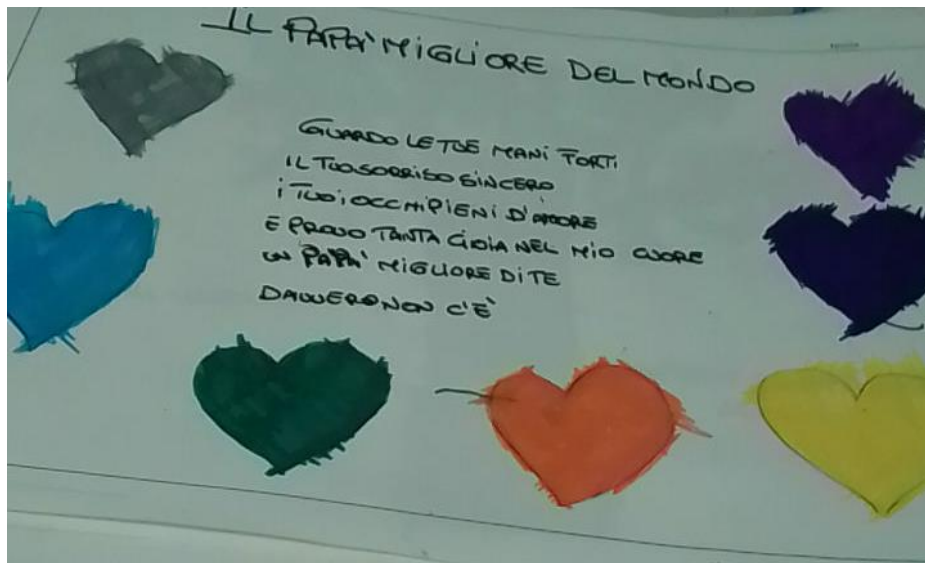 IL PAPA' MIGLIORE DEL MONDO
GUARDO LE TUE MANI FORTI
IL TUO SORRISO SINCERO
I TUOI OCCHI PIENI D'AMORE
E PROVO TANTA GIOIA NEL MIO CUORE
UN PAPA' MIGLIORE DI TE
DAVVERO NON C'È